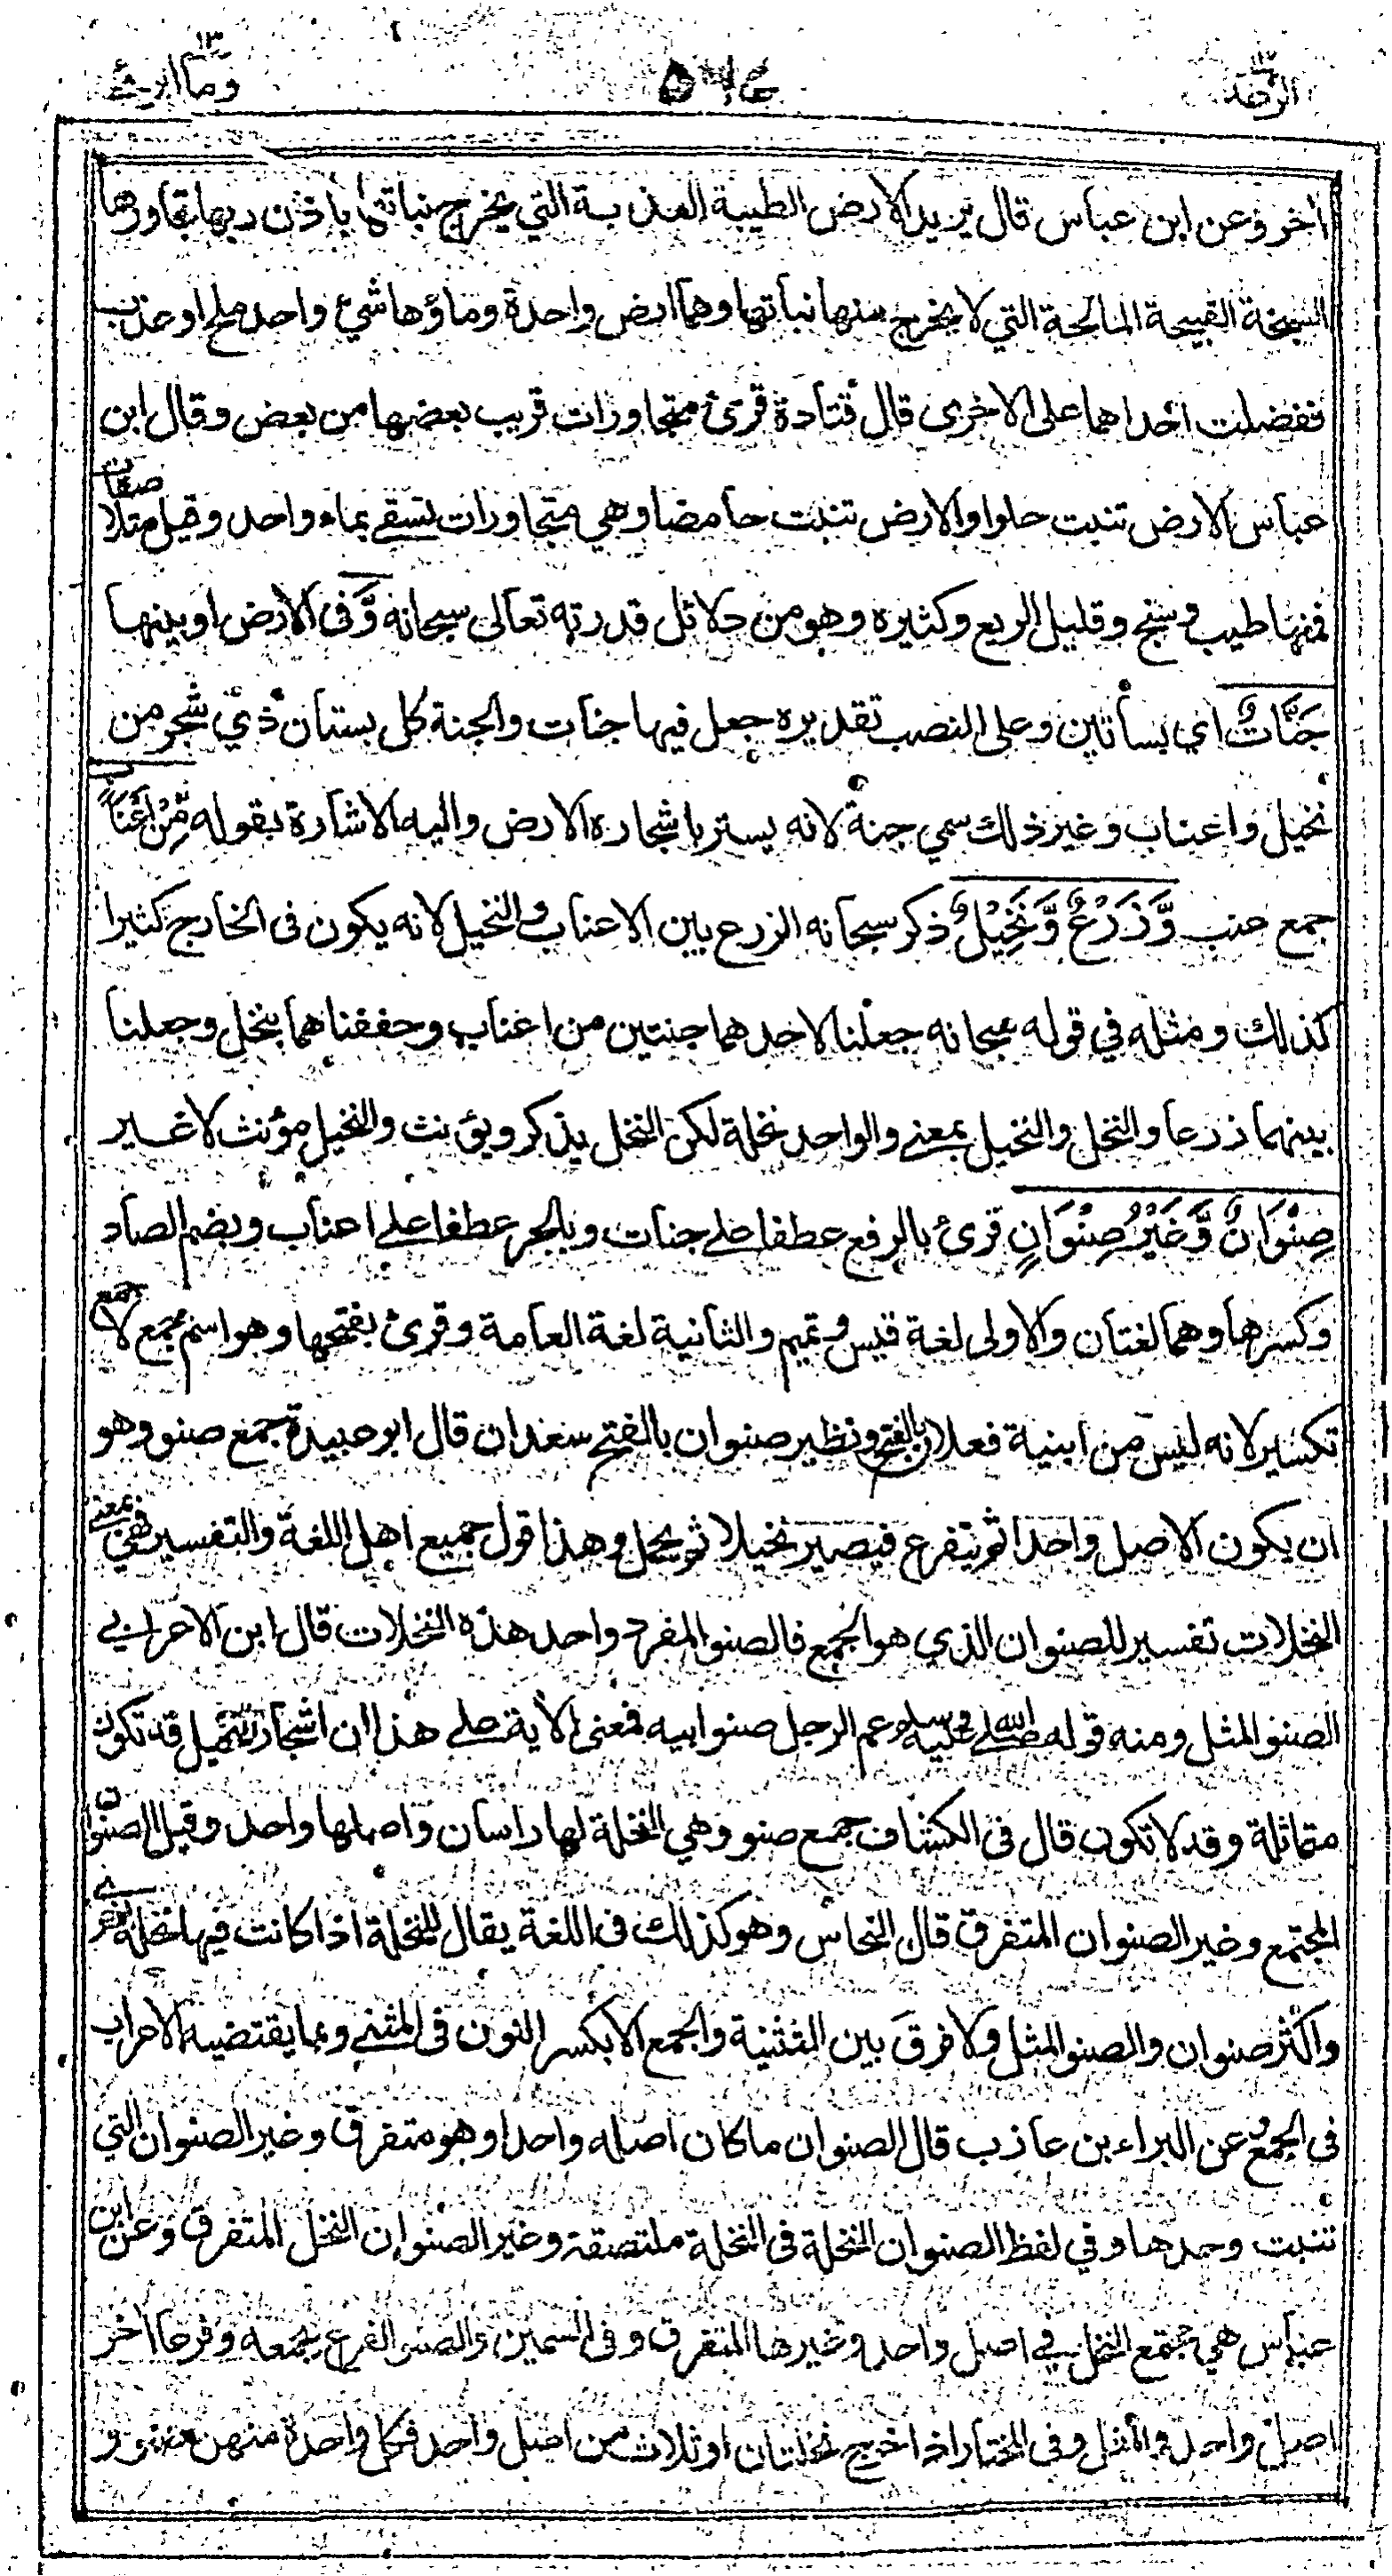 الرعد ١٣
٥٦٤
وما ابرئ ١٣
أخر وعن ابن عباس قال يريد الارض الطيبة العذبة التي يخرج نباتها باذن ربها تجاورها
السبخة القبيحة المالحة التي لا يخرج منها نباتها وهما ارض واحدة وماؤها شيء واحد ملح او عذب
ففضلت احداهما على الاخرى قال قتادة قرئ متجاورات قريب بعضها من بعض وقال ابن
عباس الارض تنبت حلوا والارض تنبت حامضا وهي متجاورات تسقى بماء واحد وقيل متلاصقات
فمنها طيب وسبخ وقليل الريع وكثيره وهو من دلائل قدرته تعالى سبحانه وَّفى الارض او بينها
جَنَّاتٌ اي بساتين وعلى النصب تقديره جعل فيها جنات والجنة كل بستان ذي شجر من
نخيل واعناب وغير ذلك سمي جنة لانه يستر باشجاره الارض واليه الاشارة بقوله مِّنْ اَعْنَابٍ
جمع عنب وَّزَرْعٌ وَّنَخِيْلٌ ذكر سبحانه الزرع بين الاعناب والنخيل لانه يكون فى الخارج كثيرا
كذلك ومثله في قوله سبحانه جعلنا لاحدهما جنتين من اعناب وحففناهما بنخل وجعلنا
بينهما زرعا والنخل والنخيل بمعنى والواحد نخلة لكن النخل يذكر ويؤنث والنخيل مؤنث لا غير
صِنْوَانٌ وَّغَيْرُ صِنْوَانٍ قرئ بالرفع عطفا على جنات وبالجر عطفا على اعناب وبضم الصاد
وكسرها وهما لغتان والاولى لغة قيس وتميم والثانية لغة العامة وقرئ بفتحها وهو اسم جمع لا جمع
تكسير لانه ليس من ابنية فعلان بالفتح ونظير صنوان بالفتح سعدان قال ابو عبيدة جمع صنو وهو
ان يكون الاصل واحدا ثم يتفرع فيصير نخيلا ثم يحمل وهذا قول جميع اهل اللغة والتفسير فهي بمعنى
النخلات تفسير للصنوان الذي هو الجمع فالصنو المفرد واحد هذه النخلات قال ابن الاعرابي
الصنو المثل ومنه قوله صلى الله عليه وسلم عم الرجل صنو ابيه فمعنى الآية على هذا ان اشجار النخيل قد تكون
متماثلة وقد لا تكون قال فى الكشاف جمع صنو وهي النخلة لها راسان واصلها واحد وقيل الصنوان
المجتمع وغير الصنوان المتفرق قال النحاس وهو كذلك فى اللغة يقال للنخلة اذا كانت فيها نخلة اخرى
واكثر صنوان والصنو المثل ولا فرق بين التثنية والجمع الا بكسر النون فى المثنى وبما يقتضيه الاعراب
فى الجمع عن البراء بن عازب قال الصنوان ما كان اصله واحدا وهو متفرق وغير الصنوان التي
تنبت وحدها وفي لفظ الصنوان النخلة فى النخلة ملتصقة وغير الصنوان النخل المتفرق وعن ابن
عباس هي مجتمع النخل في اصل واحد وغيرها المتفرق وفى السمين والصنو الفرع يجمعه وفرعا آخر
اصل واحد والمثل وفى المختار اذا خرج نخلتان او ثلاث من اصل واحد فكل واحدة منهن صنو و